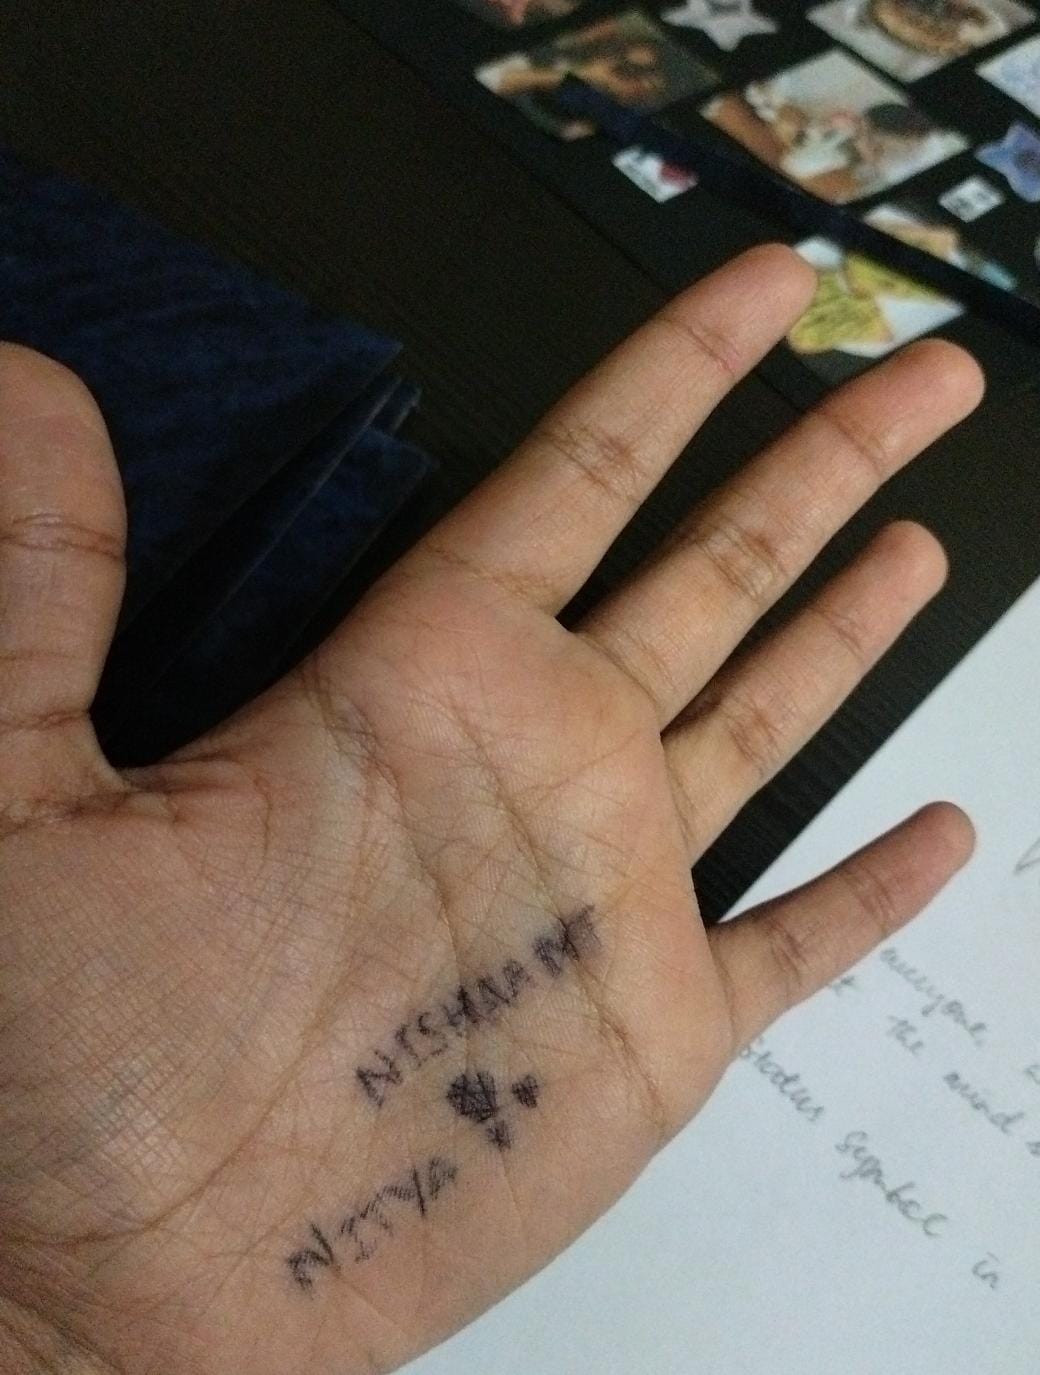 NISHAANT
NITYA
everyone,
the mind
Status Symbol in